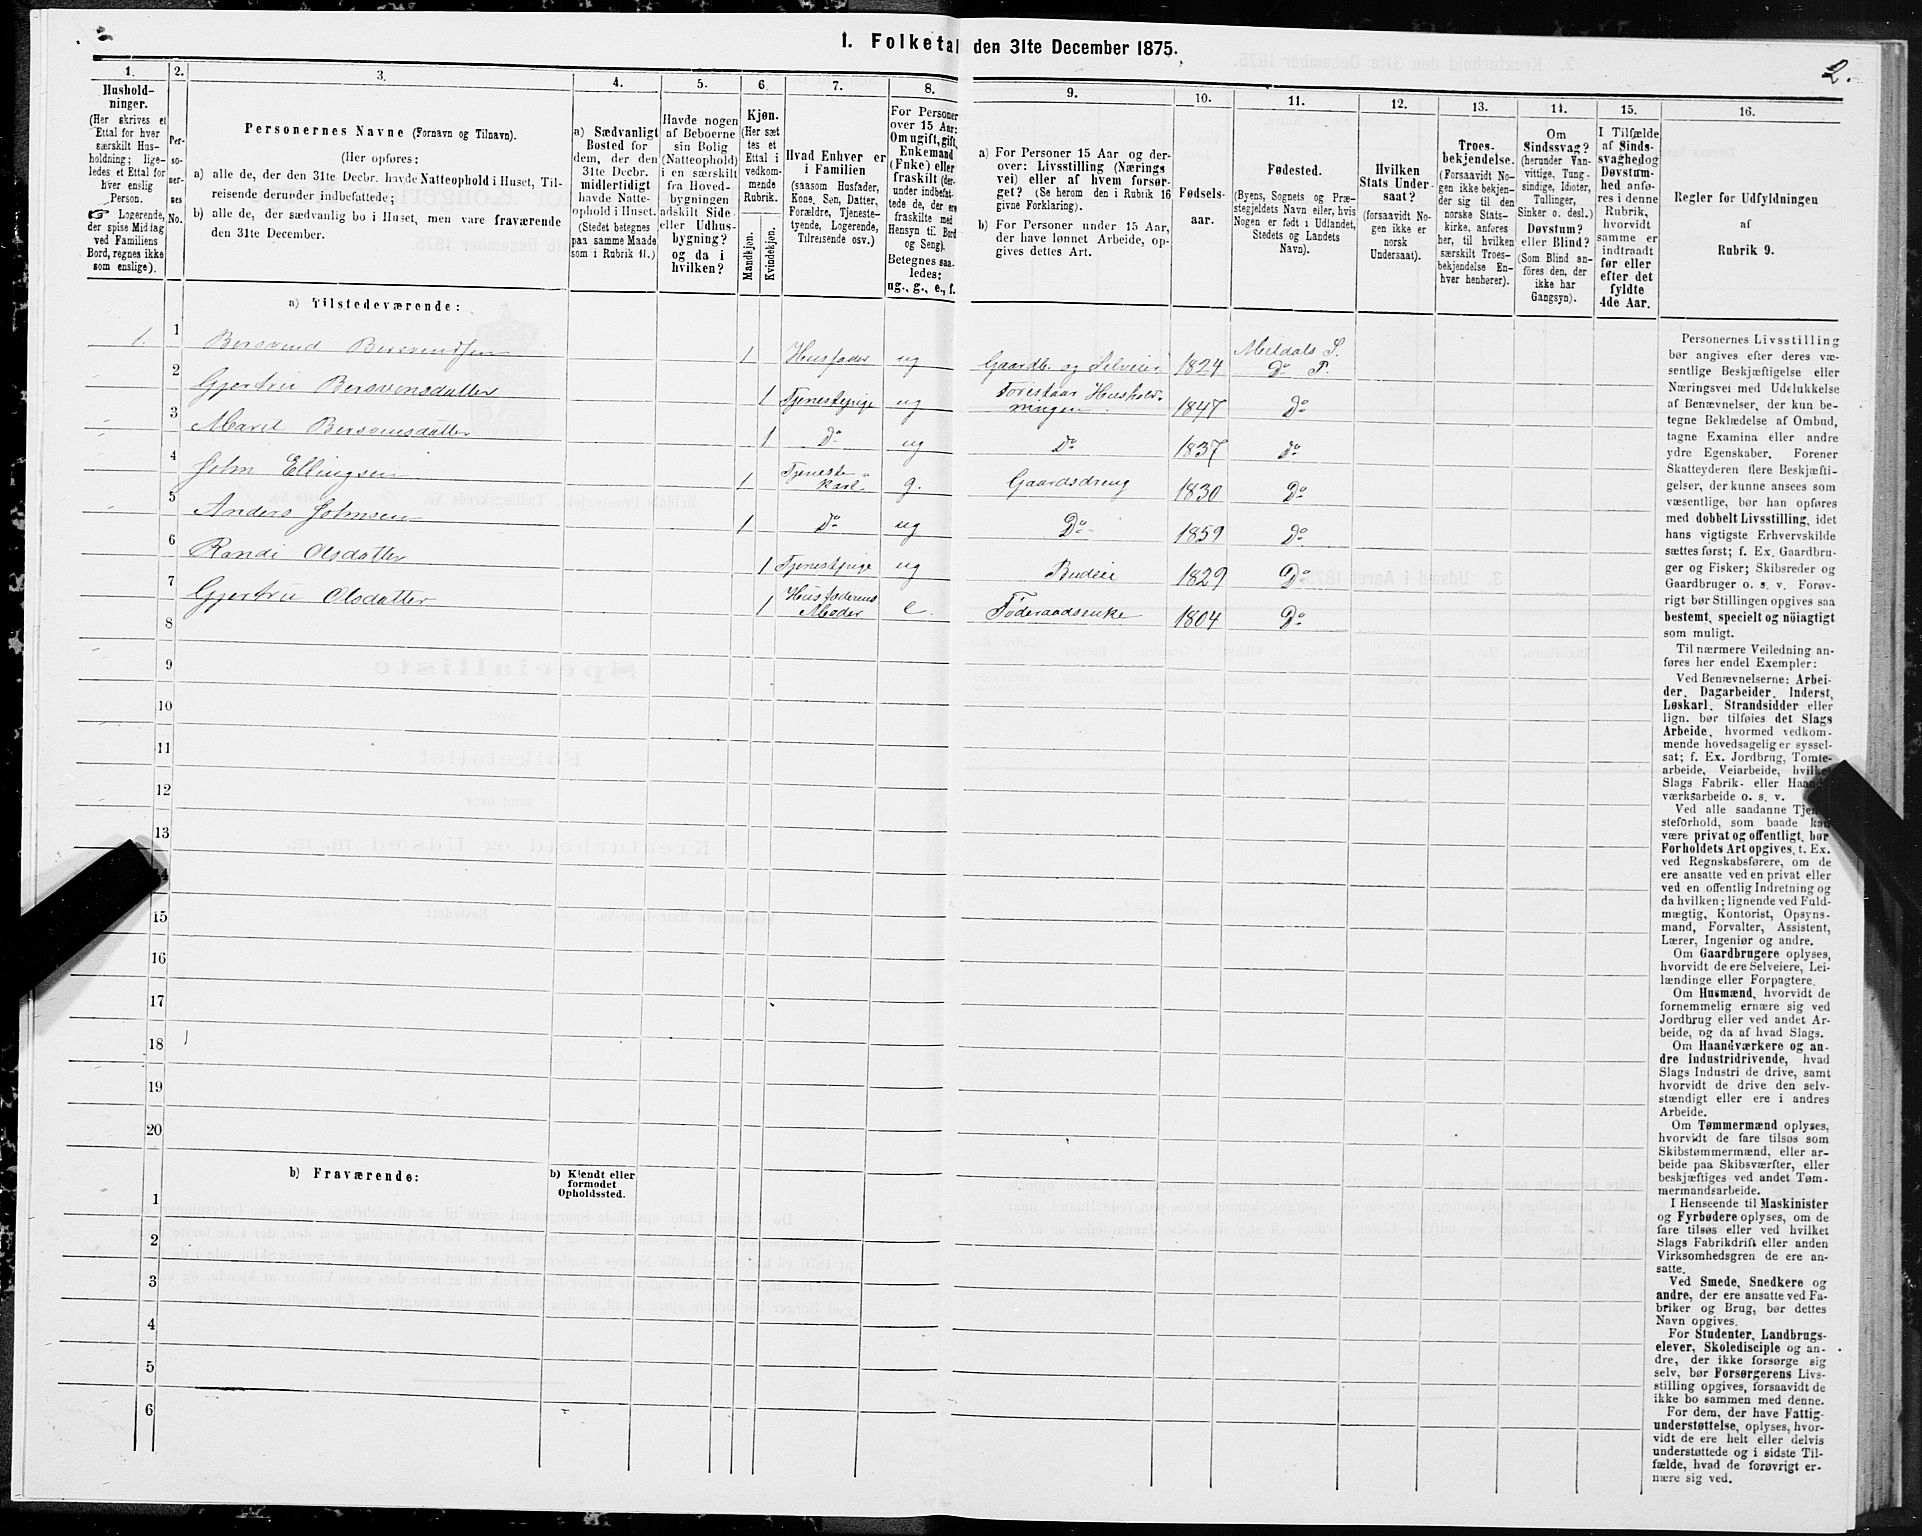 1. Folketal den 31te December 1875.
2.
1.
Hushold-
ninger.
(Her skrives et
Ettal for hver
særskilt Hus-
holdning; lige-
ledes et Ettal for
hver enslig
Person.
☞ Logerende,
der spise Middag
ved Familiens
Bord, regnes ikke
som enslige).
2.
Per-
so-
ner-
nes
No.
3.
Personernes Navne (Fornavn og Tilnavn).
(Her opføres:
a) alle de, der den 31te Decbr. havde Natteophold i Huset, Til-
reisende derunder indbefattede;
b) alle de, der sædvanlig bo i Huset, men vare fraværende
den 31te December.
4.
a) Sædvanligt
Bosted for
dem, der den
31te Decbr.
midlertidigt
havde Natte-
ophold i Huset.
(Stedet betegnes
paa samme Maade
som i Rubrik 11.)
5.
Havde nogen
af Beboerne
sin Bolig
(Natteophold)
i en særskilt
fra Hoved-
bygningen
adskilt Side-
eller Udhus-
bygning?
og da i
hvilken?
6.
Kjøn.
(Her sæt
tes et
Ettal i
vedkom-
mende
Rubrik.
Mandkjøn.
Kvindekjøn.
7.
Hvad Enhver er
i Familien
(saasom Husfader,
Kone, Søn, Datter,
Forældre, Tjeneste-
tyende, Logerende,
Tilreisende osv.)
8.
For Personer
over 15 Aar:
Om ugift, gift,
Enkemand
(Enke) eller
fraskilt (der-
under indbefat-
tede de, der ere
fraskilte med
Hensyn til Bord
og Seng).
Betegnes saa-
ledes:
ug., g., e., f.
9.
a) For Personer 15 Aar og der-
over: Livsstilling (Nærings
vei) eller af hvem forsør-
get? (Se herom den i Rubrik 16
givne Forklaring).
b) For Personer under 15 Aar,
der have lønnet Arbeide, op-
gives dettes Art.
10.
Fødsels-
aar.
11.
Fødested.
(Byens, Sognets og Præ-
stegjeldets Navn eller, hvis
Nogen er født i Udlandet,
Stedets og Landets
Navn).
12.
Hvilken
Stats Under-
saat?
(forsaavidt No-
gen ikke er
norsk
Undersaat).
13.
Troes-
bekjendelse.
(Forsaavidt No-
gen ikke bekjen-
der sig til den
norske Stats-
kirke, anføres
her, til hvilken
særskilt Troes-
bekjendelse En-
hver henhører).
14.
Om
Sindssvag?
(herunder Van-
vittige, Tung-
sindige, Idioter,
Tullinger,
Sinker o. desl.)
Døvstum?
eller Blind?
(Som Blind an-
føres den, der
ikke har
Gangsyn).
15.
I Tilfælde
af Sinds-
svaghed og
Døvstum-
hed anfø-
res i denne
Rubrik,
hvorvidt
samme er
indtraadt
før eller
efter det
fyldte
4de Aar.
16.
Regler for Udfyldningen
af
Rubrik 9.
a) Tilstedeværende:
1. 1 Bersvend Bersvendsen 1 Husfader ug Gaardb. og Selveier 1824 Meldals S. Do P.
2 Gjertru Bersvensdatter 1 Tjenestepige ug Forestaar Hushold- ningen 1847 Do
3 Marit Bersvensdatter 1 Do ug Do 1837 Do
4 John Ellingsen 1 Tjeneste- karl g. Gaardsdreng 1830 Do
5 Anders Johnsen 1 Do ug Do 1859 Do
6 Randi Olsdatter 1 Tjenestpige ug Budeie 1829 Do
7 Gjertru Olsdatter 1 Husfaderens Moder e. Føderaadsenke 1804 Do
8
9
10
11
12
13
14
15
16
17
18
19
20
b) Fraværende:
b) Kjendt eller
formodet
Opholdssted.
1
2
3
4
5
6
Personernes Livsstilling
bør angives efter deres væ-
sentlige Beskjæftigelse eller
Næringsvei med Udelukkelse
af Benævnelser, der kun be-
tegne Beklædelse af Ombud,
tagne Examina eller andre
ydre Egenskaber. Forener
Skatteyderen flere Beskjæfti-
gelser, der kunne ansees som
væsentlige, bør han opføres
med dobbelt Livsstilling, idet
hans vigtigste Erhvervskilde
sættes først; f. Ex. Gaardbru-
ger og Fisker; Skibsreder og
Gaardbruger o. s. v. Forøv-
rigt bør Stillingen opgives saa
bestemt, specielt og nøiagtigt
som muligt.
Til nærmere Veiledning an-
føres her endel Exempler:
Ved Benævnelserne: Arbei-
der, Dagarbeider, Inderst,
Løskarl, Strandsidder eller
lign. bør tilføies det Slags
Arbeide, hvormed vedkom-
mende hovedsagelig er syssel-
sat; f. Ex. Jordbrug, Tomte-
arbeide, Veiarbeide, hvilket
Slags Fabrik- eller Haand-
værksarbeide o. s. v.
Ved alle saadanne Tjene-
steforhold, som baade kan
være privat og offentligt, bør
Forholdets Art opgives, t. Ex.
ved Regnskabsførere, om de
ere ansatte ved en privat eller
ved en offentlig Indretning og
da hvilken; lignende ved Fuld-
mægtig, Kontorist, Opsyns-
mand, Forvalter, Assistent,
Lærer, Ingeniør og andre.
Om Gaardbrugere oplyses,
hvorvidt de ere Selveiere, Lei-
lændinge eller Forpagtere.
Om Husmænd, hvorvidt de
fornemmelig ernære sig ved
Jordbrug eller ved andet Ar-
beide, og da af hvad Slags.
Om Haandværkere og an-
dre Industridrivende, hvad
Slags Industri de drive, samt
hvorvidt de drive den selv-
stændigt eller ere i andres
Arbeide.
Om Tømmermænd oplyses,
hvorvidt de fare tilsøs som
Skibstømmermænd, eller ar-
beide paa Skibsværfter, eller
beskjæftiges ved andet Tøm-
mermandsarbeide.
I Henseende til Maskinister
og Fyrbødere oplyses, om de
fare tilsøs eller ved hvilket
Slags Fabrikdrift eller anden
Virksomhedsgren de ere an-
satte.
Ved Smede, Snedkere og
andre, der ere ansatte ved Fa-
briker og Brug, bør dettes
Navn opgives.
For Studenter, Landbrugs-
elever, Skoledisciple og an-
dre, der ikke forsørge sig
selv, bør Forsørgerens Livs-
stilling opgives, forsaavidt de
ikke bo sammen med denne.
For dem, der have Fattig-
understøttelse, oplyses, hvor-
vidt de ere helt eller delvis
understøttede og i sidste Til-
fælde, hvad de forøvrigt er-
nære sig ved.